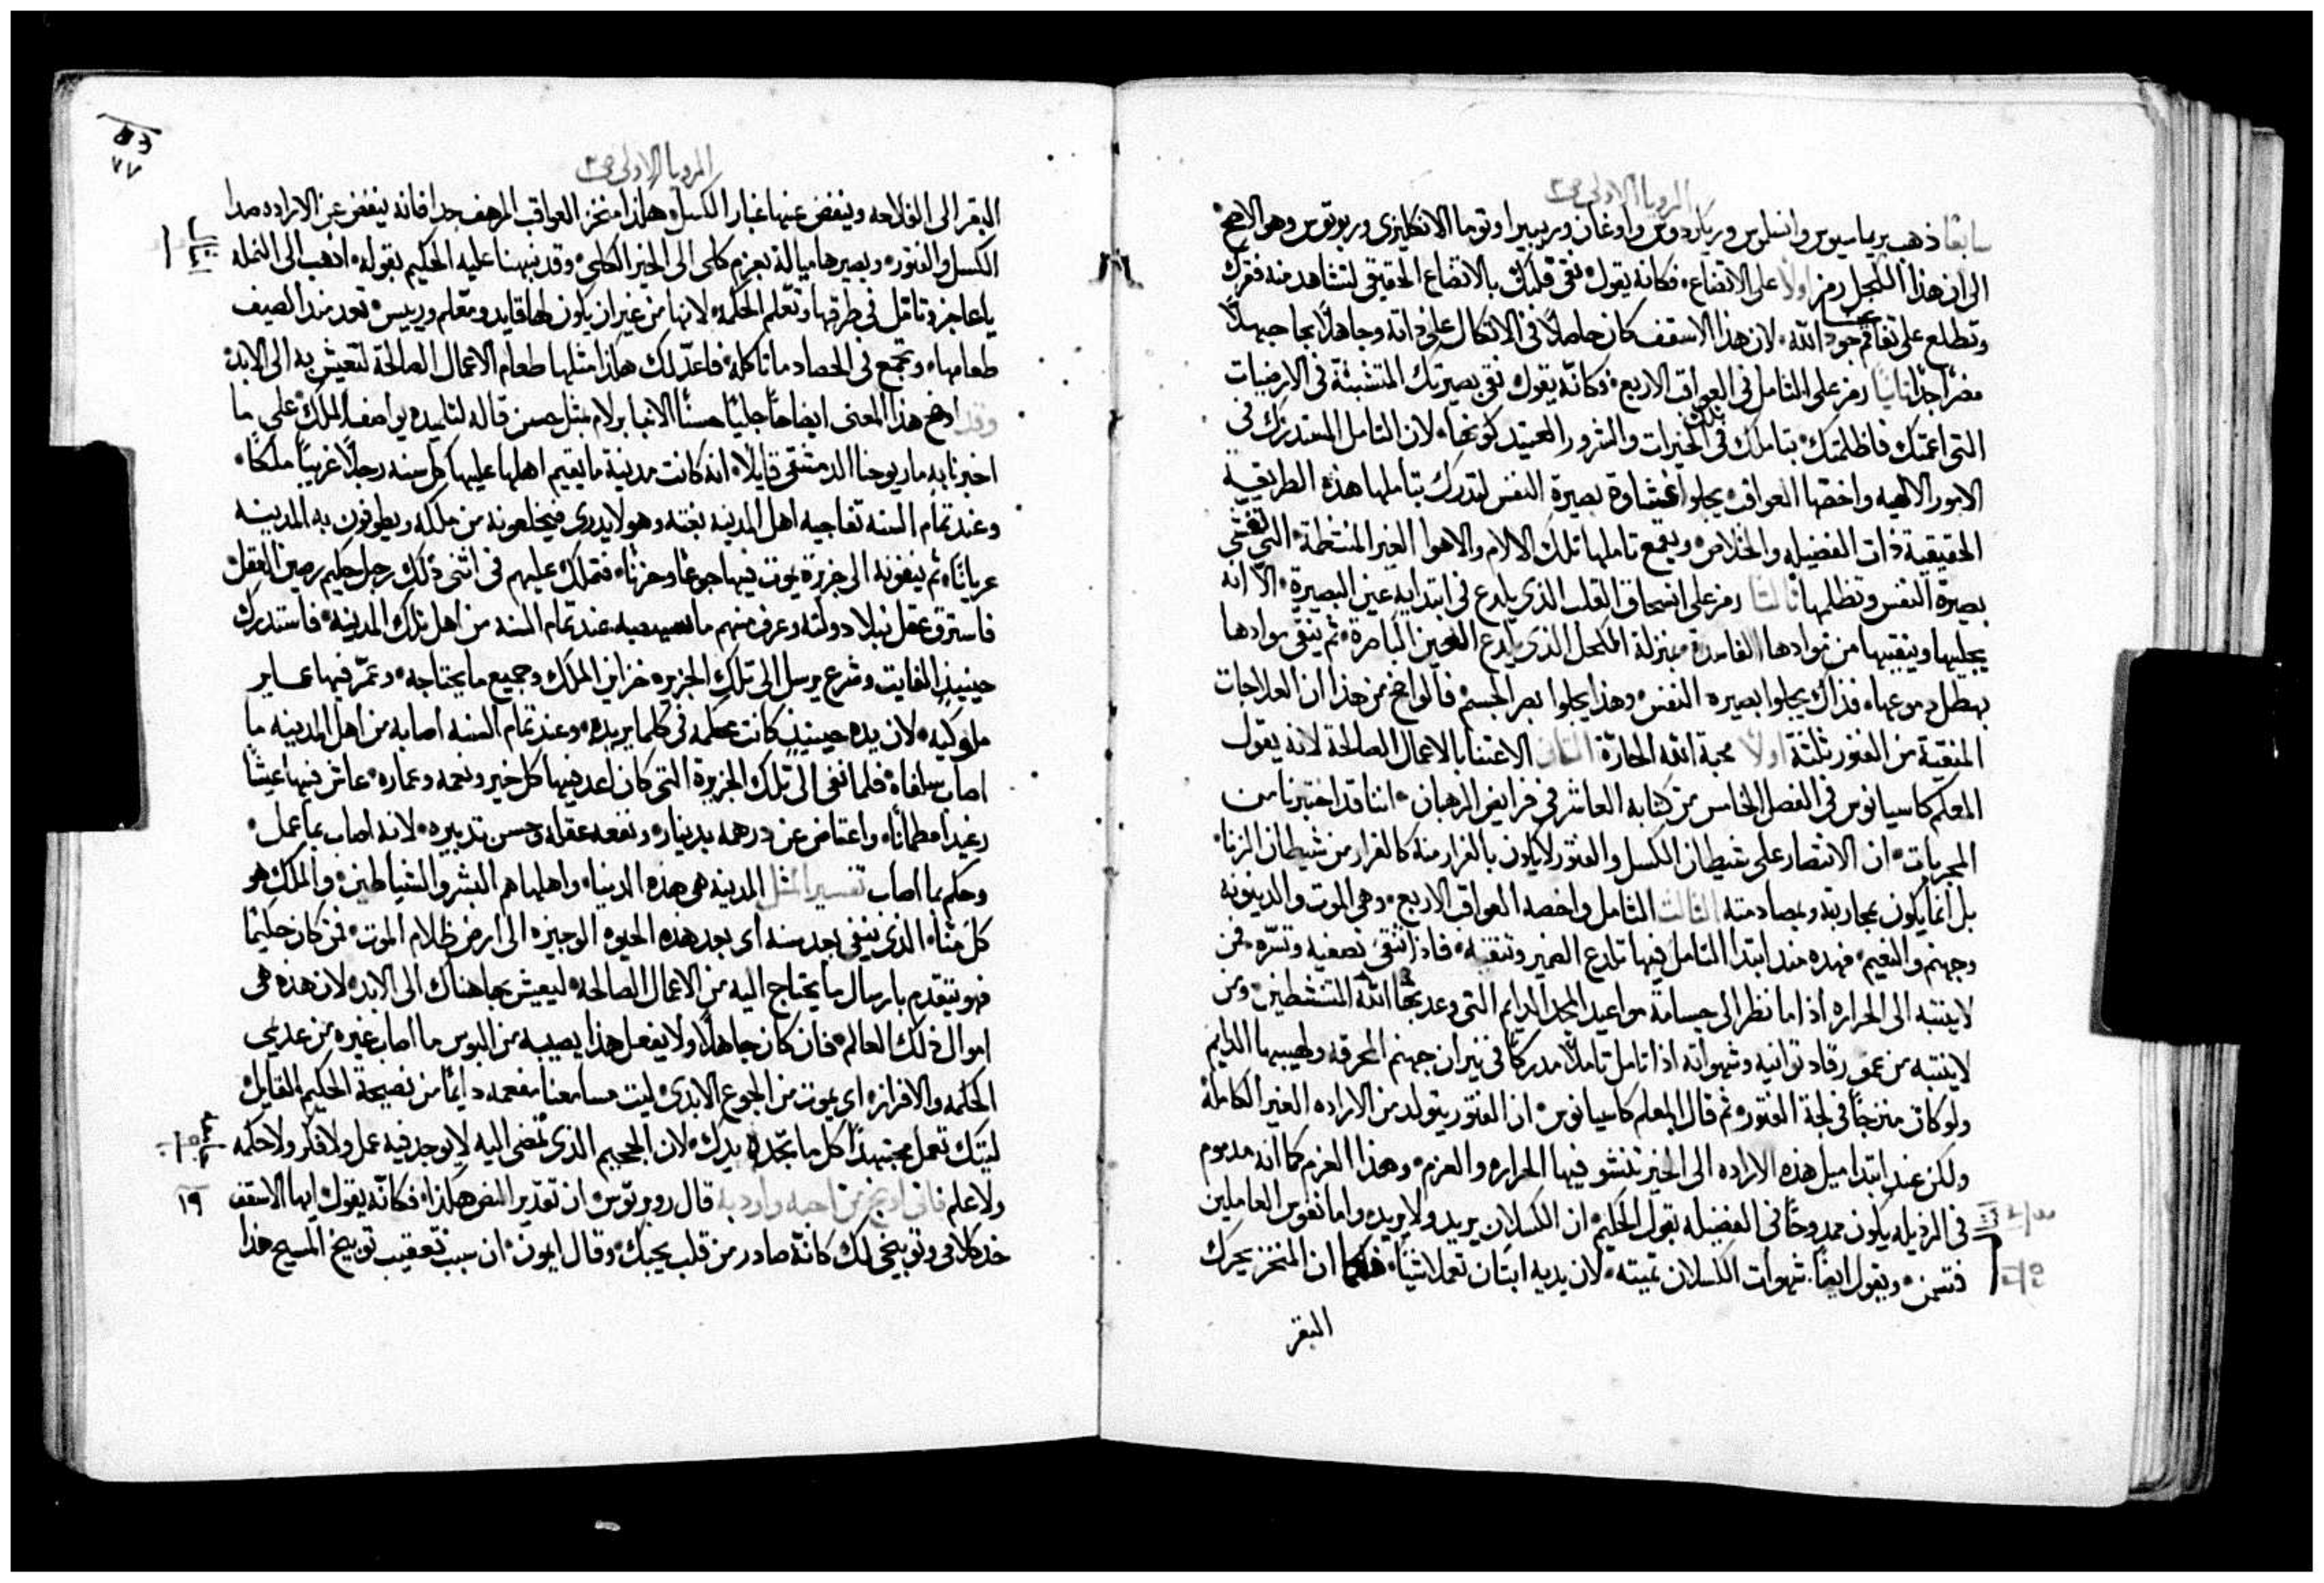 الرويا الاولى ص٣
سابعًا ذهب بريماسيوس وانسلوس وريكاردوس واوغان وريبيرا وتوما الانكليزى وروبرتوس وهو الاصح
الى ان هذا الكحل رمز اولًا على الاتضاع، فكانه يقول نقى قلبك بالاتضاع الحقيقى لتشاهد منه فقرك
وتطلع على تفاقم جود الله، لان هذا الاسقف كان حاصلًا فى الاتكال على ذاته وجاهلًا بما جهلًا
مضرًا جدًا ثانيًا رمز على التامل فى العواقب الاربع، فكانه يقول نقى بصيرتك المتشبثة فى الارضيات
التى اعمتك فاظلمتك بتاملك فى الخيرات والشرور العتيد كونها، لان التامل المستدرك فى
الامور الالهيه واخصها العواقب يجلوا غشاوة بصيرة النفس لتدرك بتاملها هذه الطريقة
الحقيقية ذات الفضيله والخلاص، ويقمع تاملها تلك الالام والاهوا الغير المنتظمة، التى تغشى
بصيرة النفس وتظلمها ثالثًا رمز على انسحاق القلب الذى يلدع فى ابتدايه عين البصيرة، الا انه
يجليها وينقيها من موادها الفاسدة بمنزلة الكحل الذى يلدع العين الباصرة، ثم ينقى موادها
بهطل دموعها، فذاك يجلوا بصيره النفس، وهذا يجلوا بصر الجسم فالواضح من هذا ان العلاجات
المنقية من الفتور ثلثة اولًا محبة الله الحارّة الثانى الاعتنا بالاعمال الصالحة لانه يقول
المعلم كاسيانوس فى الفصل الخامس من كتابه العاشر فى فرايض الرهبان، اننا قد اختبرنا من
المجربات، ان الانتصار على شيطان الكسل والفتور لا يكون بالفرار منه كالفرار من شيطان الزنا،
بل انما يكون بمحاربته وبمصادمته الثالث التامل واخصه العواقب الاربع، وهى الموت والدينونه
وجهنم والنعيم، فهذه منذ ابتدا التامل فيها تلدع الضمير وتنقيه، فاذا انتقى تصفيه وتسرّه فمن
لا ينتبه الى الحراره اذا ما نظر الى جسامة مواعيد المجد الدايم التى وعد بها الله المتنشطين، ومن
لا ينتبه من عمق رقاد توانيه وشهواته اذا تامل تاملًا مدركًا فى نيران جهنم المحرقه ولهيبها الدايم
ولو كان منزجًا فى لجة الفتور، ثم قال المعلم كاسيانوس، ان الفتور يتولد من الاراده الغير الكامله
ولكن عند ابتدا ميل هذه الاراده الى الخير تنشو فيها الحراره والعزم، وهذا العزم كما انه مدموم
فى الرذيله يكون ممدوحًا فى الفضيله بقول الحكيم، ان الكسلان يريد ولا يريد، واما نفوس العاملين
فتسمن، ويقول ايضًا، شهوات الكسلان تميته، لان يديه ابتان تعملا شيًا، فكما ان المنخز يحرك
البقر
الرويا الاولى ص٣
٧٧
البقر الى الفلاحه وينفض عنها غبار الكسل، هكذا منخز العواقب المرهف جدا فانه ينفض عن الاراده صدا
الكسل والفتور، ويصيرها ميالة بعزم كلى الى الخير الكلى، وقد نبهنا عليه الحكيم بقوله، اذهب الى النمله
يا عاجز وتامل فى طرقها وتعلم الحكمه، لانها من غير ان يكون لها قايد ومعلم ورييس، تعد منذ الصيف
طعامها، وتجمع فى الحصاد ماتاكله، فاعدّ لك هكذا مثلها طعام الاعمال الصالحة لتعيش به الى الابد،
وقد اوضح هذا المعنى ايضاحًا جليًا حسنًا الانبا برلام بمثل حسن قاله لتلميده يواصف الملك، على ما
اخبرنا به مار يوحنا الدمشقى قايلًا، انه كانت مدينة ما يقيم اهلها عليها كل سنه رجلًا غريبًا ملكًا،
وعند تمام السنه تفاجيه اهل المدينه بغته وهو لا يدرى فيخلعونه من ملكه ويطوفون به المدينه
عريانًا، ثم ينفونه الى جزيرة يموت فيها جوعًا وحزنًا، فتملك عليهم فى اثنى ذلك رجل حكيم رصين العقل
فاسترق بعقل نبلا دولته وعرف منهم ما سيصيبه عند تمام السنه من اهل تلك المدينه، فاستدرك
حينيذ الفايت وشرع يرسل الى تلك الجزيره خزاين الملك وجميع ما يحتاجه، وعمّر فيها عماير
ملوكيه، لان يده حينيذ كانت محكمه فى كلما يريده، وعند تمام السنه اصابه من اهل المدينه ما
اصاب سلفاه، فلما نفى الى تلك الجزيرة التى كان اعد فيها كل خير ونعمه وعماره، عاش فيها عيشًا
رغيدا مطمانًا، واعتاض عن درهمه بدينار، ونفعه عقله وحسن تدبيره، لانه اصاب بما عمل،
وحكم بما اصاب تفسير المثل المدينه هى هذه الدنيا، واهلها هم البشر والشياطين، والملك هو
كل منّا، الذى ينتفى بعد سنه اى بعد هذه الحيوه الوجيزه الى ارض ظلام الموت، فمن كان حكيمًا
فهو يتقدم بارسال ما يحتاج اليه من الاعمال الصالحه، ليعيش بها هناك الى الابد، لان هذه هى
اموال ذلك العالم، فان كان جاهلًا ولا يفعل هذا يصيبه من البوس ما اصاب غيره من عديمى
الحكمه والافراز، اى يموت من الجوع الابدى، ليت مسامعنا مفعمه دايمًا من نصيحة الحكيم القايل
ليتك تعمل مجتهدًا كل ما تجده يدك، لان الجحيم الذى تمضى اليه لا يوجد فيه عمل ولا فكر ولا حكمه
ولا علم فانى اوبخ من احبه واودبه قال روبرتوس، ان تقدير النص هكذا، فكانه يقول ايها الاسقف
١٩
خد كلامى وتوبيخى لك كانه صادر من قلب يحبك، وقال ايبون، ان سبب تعقيب توبيخ المسيح هذا